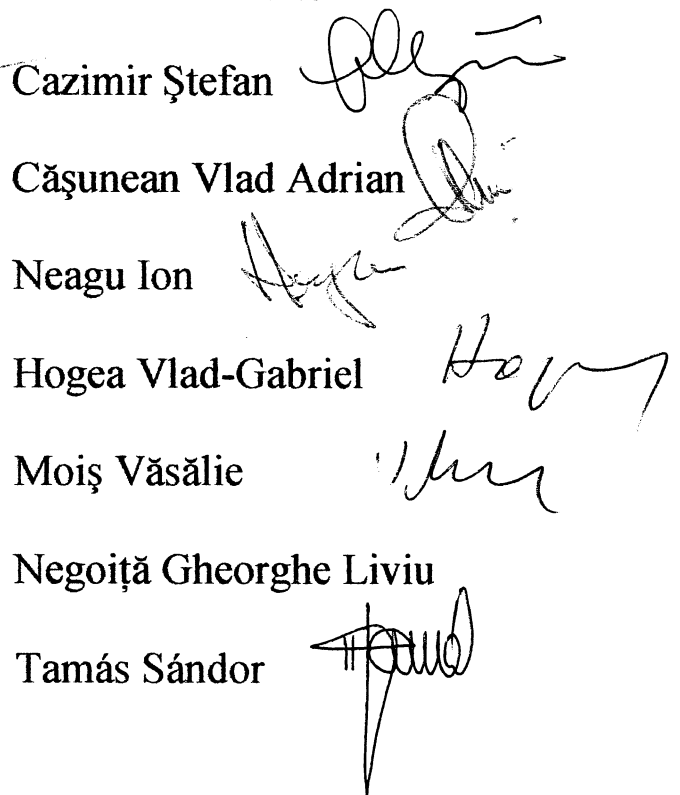 Cazimir Ştefan
Căşunean Vlad Adrian
Neagu Ion
Hogea Vlad-Gabriel
Moiş Văsălie
Negoiţă Gheorghe Liviu
Tamás Sándor